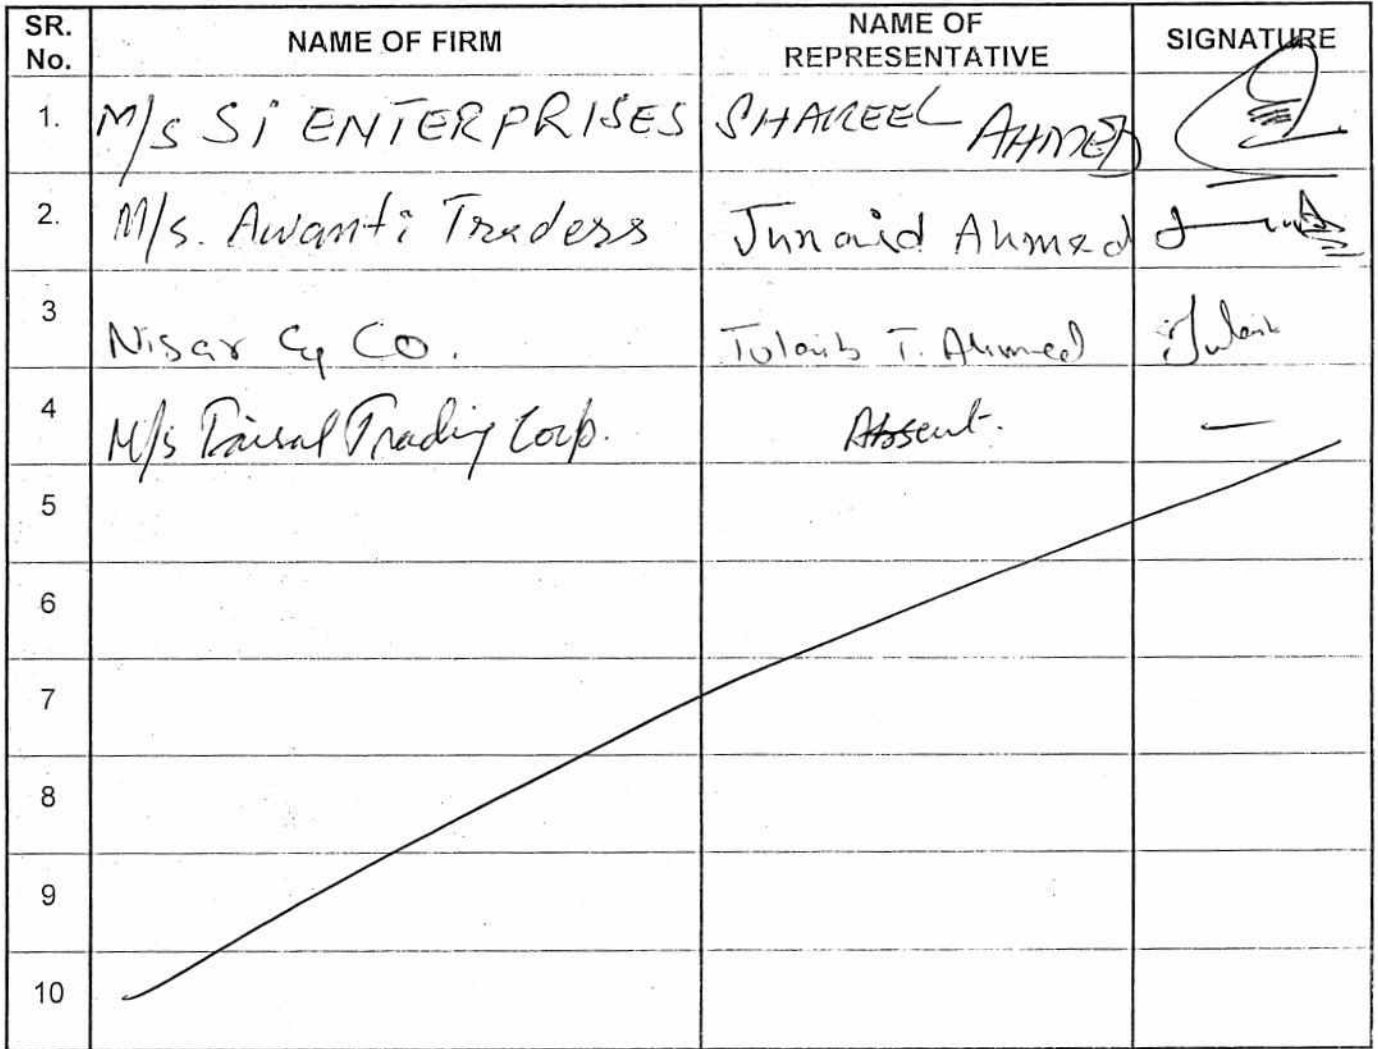 SR. No. NAME OF FIRM NAME OF REPRESENTATIVE SIGNATURE
1. M/s Si ENTERPRISES SHAKEEL AHMED
2. M/s. Awanti Traders Junaid Ahmed
3 Nisar & Co. Tulaib T. Ahmed Tulaib
4 M/s Faisal Trading Corp. Absent. —
5
6
7
8
9
10